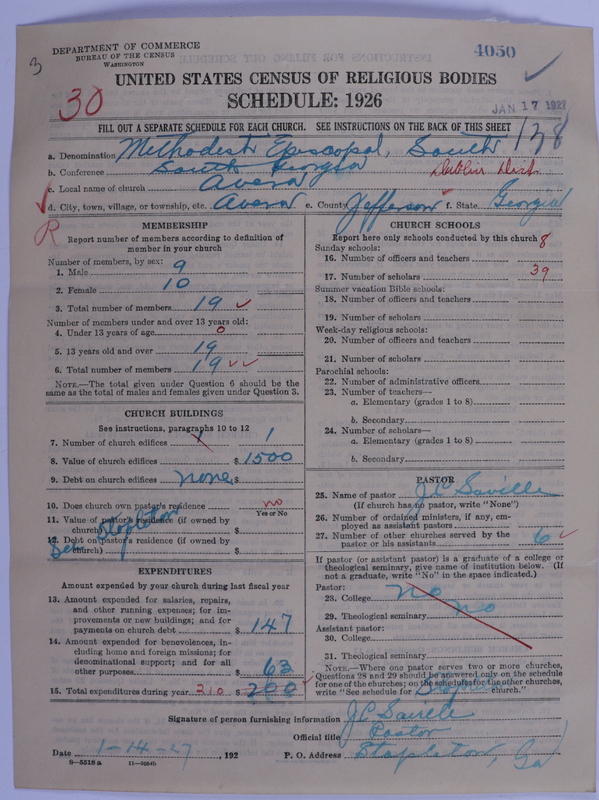 DEPARTMENT OF COMMERCE
BUREAU OF THE CENSUS
WASHINGTON
4050
3
UNITED STATES CENSUS OF RELIGIOUS BODIES
SCHEDULE: 1926
30
JAN 17 1927
FILL OUT A SEPARATE SCHEDULE FOR EACH CHURCH. SEE INSTRUCTIONS ON THE BACK OF THIS SHEET
138
a. Denomination Methodist Episcopal, South
b. Conference South Georgia Dublin Dist.
c. Local name of church Avera
d. City, town, village, or township, etc. Avera e. County Jefferson f. State Georgia
R
MEMBERSHIP
Report number of members according to definition of
member in your church
Number of members, by sex:
1. Male 9
2. Female 10
3. Total number of members 19
Number of members under and over 13 years old:
4. Under 13 years of age 0
5. 13 years old and over 19
6. Total number of members 19
NOTE.—The total given under Question 6 should be the
same as the total of males and females given under Question 3.
CHURCH BUILDINGS
See instructions, paragraphs 10 to 12
7. Number of church edifices 1 1
8. Value of church edifices $ 1500
9. Debt on church edifices none $
10. Does church own pastor's residence no
Yes or No
11. Value of pastor's residence (if owned by
church) $
12. Debt on pastor's residence (if owned by
church) $
See Stapleton
EXPENDITURES
Amount expended by your church during last fiscal year
13. Amount expended for salaries, repairs,
and other running expenses; for im-
provements or new buildings; and for
payments on church debt $ 147
14. Amount expended for benevolences, in-
cluding home and foreign missions; for
denominational support; and for all
other purposes $ 63
15. Total expenditures during year 210 $ 200
CHURCH SCHOOLS
Report here only schools conducted by this church
Sunday schools:
16. Number of officers and teachers 8
17. Number of scholars 39
Summer vacation Bible schools:
18. Number of officers and teachers
19. Number of scholars
Week-day religious schools:
20. Number of officers and teachers
21. Number of scholars
Parochial schools:
22. Number of administrative officers
23. Number of teachers—
a. Elementary (grades 1 to 8)
b. Secondary
24. Number of scholars—
a. Elementary (grades 1 to 8)
b. Secondary
PASTOR
25. Name of pastor J. C. Saville
(If church has no pastor, write "None")
26. Number of ordained ministers, if any, em-
ployed as assistant pastors
27. Number of other churches served by the
pastor or his assistants 6
If pastor (or assistant pastor) is a graduate of a college or
theological seminary, give name of institution below. (If
not a graduate, write "No" in the space indicated.)
Pastor:
28. College no
29. Theological seminary no
Assistant pastor:
30. College
31. Theological seminary
NOTE.—Where one pastor serves two or more churches,
Questions 28 and 29 should be answered only on the schedule
for one of the churches; on the schedules for the other churches,
write "See schedule for church."
Signature of person furnishing information J. C. Saville
Official title Pastor
Date 1-14-27, 192 P. O. Address Stapleton, Ga
8—5518 a